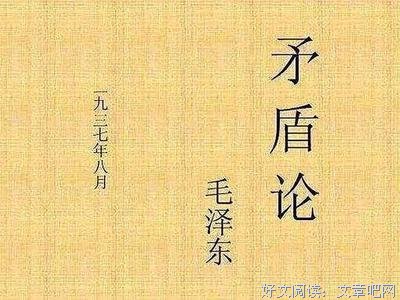 矛盾论
毛泽东
一九三七年八月
好文阅读：文章吧网